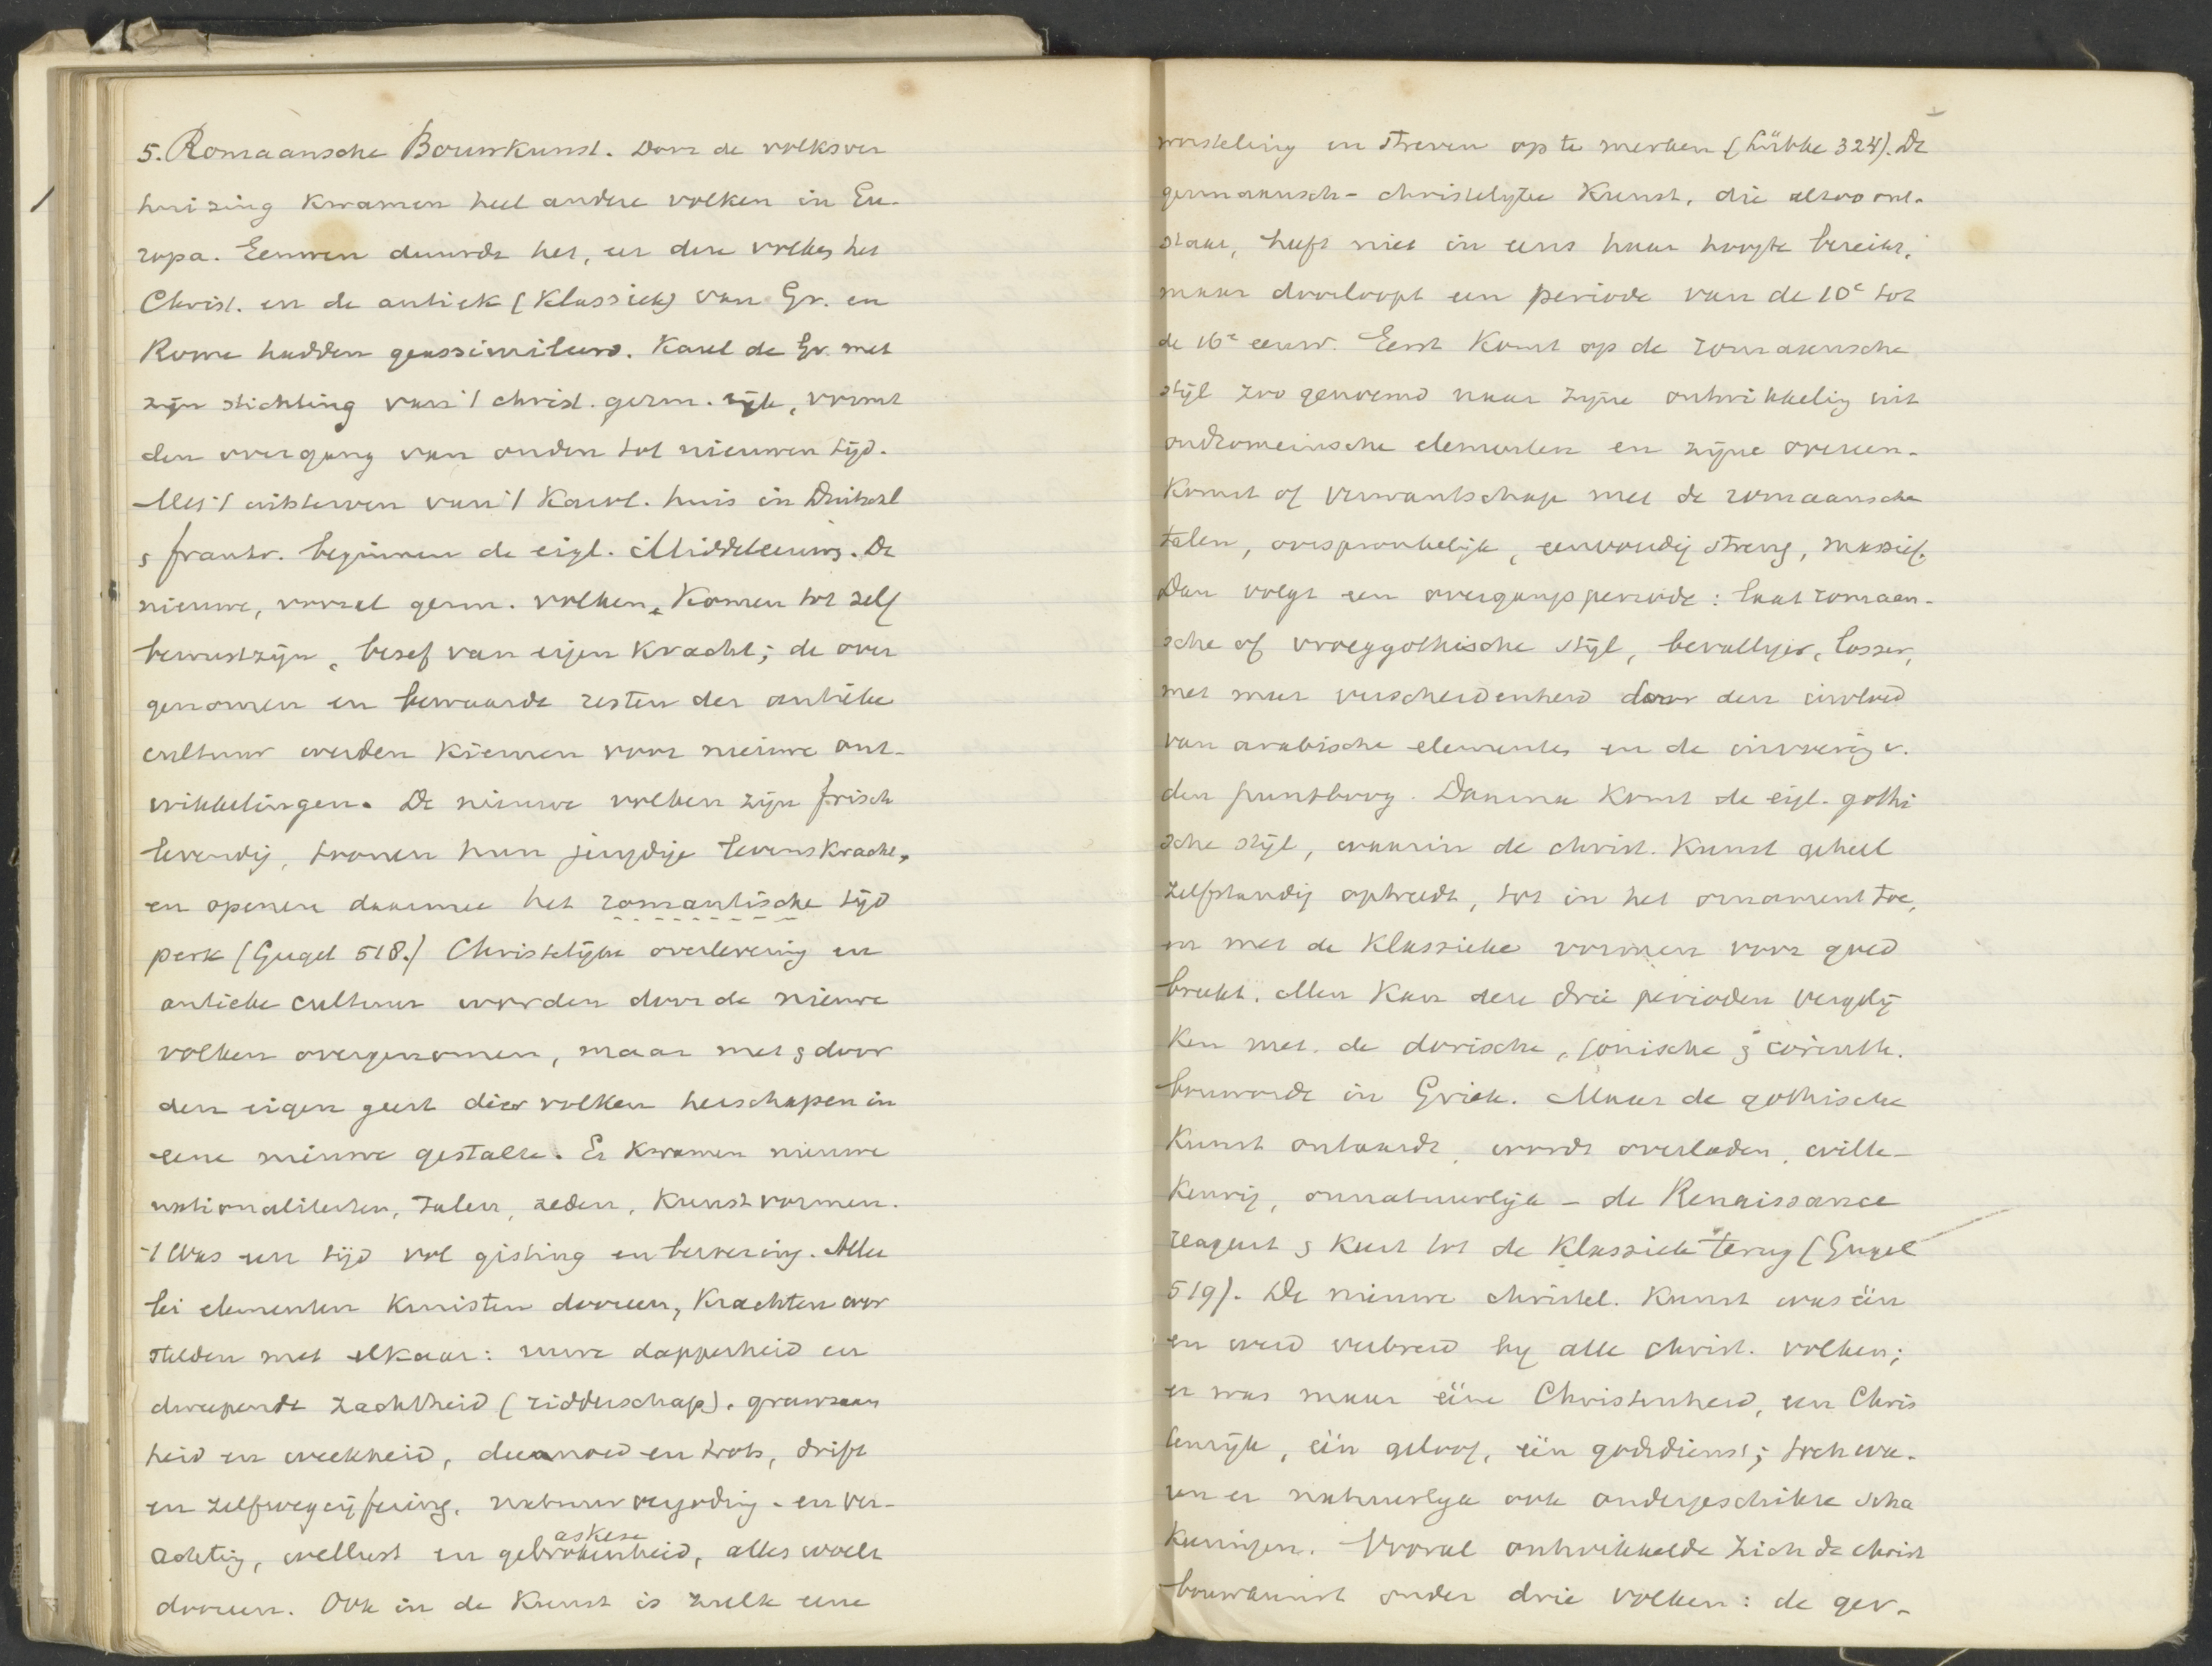 5. Romaansche Bouwkunst. Door de volksver
huizing kwamen heel andere volken in Eu-
ropa. Eeuwen duurde het, eer deze volken het
Christ. en de antiek (klassiek) van Gr. en
Rome hadden geassimileerd. Karel de Gr. met
zijn stichting van 't christ. germ. rijk, vormt
den overgang van ouden tot nieuwen tijd.
Met 't uitsterven van 't Karol. huis in Duitschl
& Frankr. beginnen de eigl. Middeleeuws. De
nieuwe, vooral germ. volken, komen tot zelf
bewustzijn, besef van eigen kracht; de over
genomen en bewaarde resten der antieke
cultuur werden kiemen voor nieuwe ont-
wikkelingen. De nieuwe volken zijn frisch
levendig, tronen hun jeugdige levenskracht,
en openen daarmee het romantische tijd
perk (Gugel 518.) Christelijke overlevering en
antieke cultuur worden door de nieuwe
volken overgenomen, maar met & door
den eigen geest dier volken herschapen in
eene nieuwe gestalte. Er kwamen nieuwe
nationaliteiten, talen, zeden, kunstvormen.
't Was een tijd vol gisting en beweging. Aller
lei elementen kruisten dooreen, krachten wor
stelden met elkaar: ruwe dapperheid en
dweepende zachtheid (ridderschap), grauwzaam
heid en weekheid, deemoed en trots, drift
en zelfwegcijfering, natuurvergoding - en ver-
achting, wellust en gebrokenheid, alles woelt
askese
dooreen. Ook in de kunst is zulk eene
worsteling en streven op te merken (Lübke 324). De
germaansch-christelijke kunst, die alzoo ont-
staat, heeft niet in eens haar hoogte bereikt,
maar doorloopt een periode van de 10e tot
de 16e eeuw. Eerst komt op de romaansche
stijl zoo genoemd naar zijne ontwikkelig uit
oudromeinsche elementen en zijne overeen-
komst of verwantschap met de romaansche
talen, oorspronkelijk, eenvoudig streng, massief.
Dan volgt een overgangsperiode: laat romaan-
sche of vroeggothische stijl, bevalliger, losser,
met meer verscheidenheid door den invloed
van arabische elementen en de invoering v.
den puntboog. Daarna komt de eigl. gothi
sche stijl, waarin de christ. kunst geheel
zelfstandig optreedt, tot in het ornament toe,
en met de klassieke vormen voor goed
breekt. Men kan deze drie perioden vergelij
ken met de dorische, ionische & corinth.
bouworde in Griek. Maar de gothische
kunst ontaardt, wordt overladen, wille-
keurig, onnatuurlijk - de Renaissance
reageert & keert tot de klassiek terug (Gugel
519). De nieuwe christel. kunst was één
en werd verbreid bij alle christ. volken;
er was maar ééne Christenheid, een Chris
tenrijk, één geloof, één godsdienst; toch wa-
ren er natuurlijk ook ondergeschikte scha
keeringen. Vooral ontwikkelde zich de christ
bouwkunst onder drie volken: de ger-